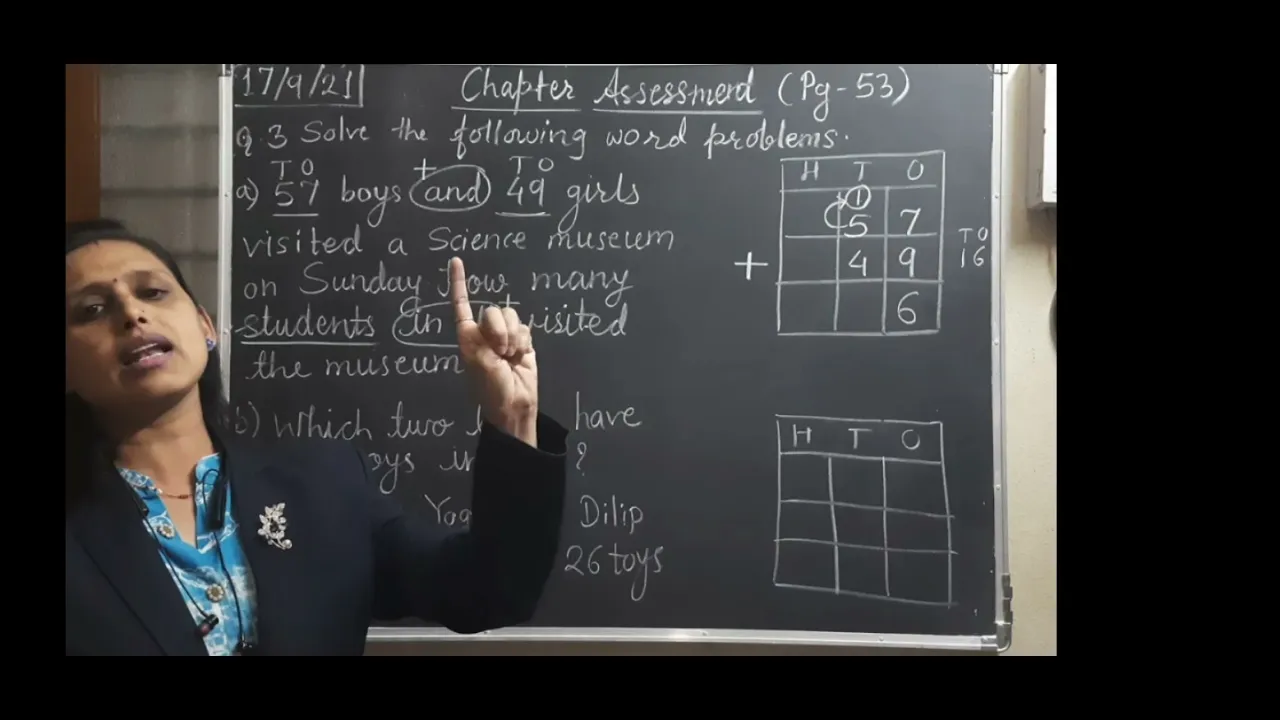 17/9/21
Chapter Assessment (Pg-53)
Q.3 Solve the following word problems.
T O + T O
a) 57 boys and 49 girls
visited a Science museum
on Sunday How many
students in visited
the museum
b) Which two have
?
Dilip
26 toys
H T O
1
5 7
+ 4 9
6
T O
1 6
H T O